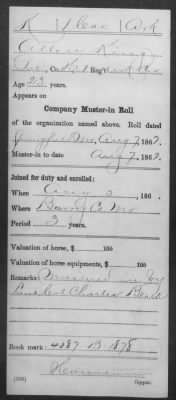 K | 1 Cav. | Ark
Allen King
Co. 1 Reg't Ark
Age 23 years.
Appears on
Company Muster-in Roll
of the organization named above. Roll dated
Springfield Mo, Aug 7, 1862.
Muster-in to date Aug 7, 1862.
Joined for duty and enrolled:
When Aug 3, 186 .
Where Barry Co Mo
Period 3 years.
Valuation of horse, $ 100
Valuation of horse equipments, $ 100
Remarks: Mustered in by
Lieut Col Charles
Book mark: 4087. B. 1878
(356) Copyist.